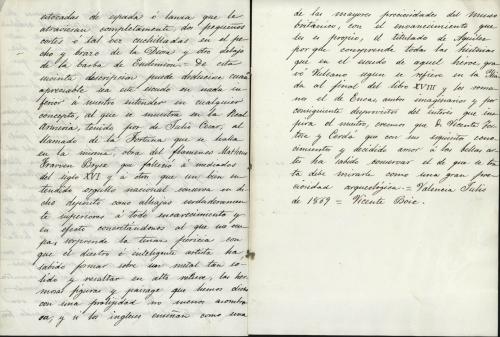 estocadas de espada ó lanza que la
atraviesan completamente, dos pequeños
cortes ó tal vez cuchilladas en el pe
cho y brazo de la Diosa y otro debajo
de la barba de Endimion = De esta
sucinta descripcion puede deducirse cuan
apreciable sea este escudo en nada in
ferior á nuestro entender en cualquier
concepto, al que se muestra en la Real
Armeria, tenido por de Julio Cesar, al
llamado de la Fortuna que se halla
en la misma, obra del flamenco Matheus
que falleció á mediados
del siglo XVI y á otro que un bien en
tendido orgullo nacional conserva en di
cho depósito como alhajas verdaderamen
te superiores á todo encarecimiento y
en efecto concretandonos al que nos ocu
pa sorprende la tenaz pericia con
que el diestro é inteligente artista ha
sabido formar sobre un metal tan so
lido y resaltar en alto relieve, las her
mosas figuras y paisage que hemos dicho
con una prolijidad no menos asombro
sa; y si los ingleses enseñan como una
de las mayores preciosidades del Museo
británico, con el encarecimiento que
les es propio, el titulado de Aquiles
porque comprende todas las historias
que en el escudo de aquel heroe, gra
vó Vulcano segun se refiere en la Ilia
da al final del libro XVIII y los roma
nos el de Eneas, ambos imaginarios y por
consiguiente desprovistos del interés que ins
pira el nuestro, creemos que D. Vicente
y Cerdá que con sus esquisitos cono
cimientos y decidido amor á las bellas ar
tes ha sabido conservar el de que se tra
ta debe mirarle como una gran pre
ciosidad arqueológica. = Valencia Julio
de 1859 = Vicente Boix.